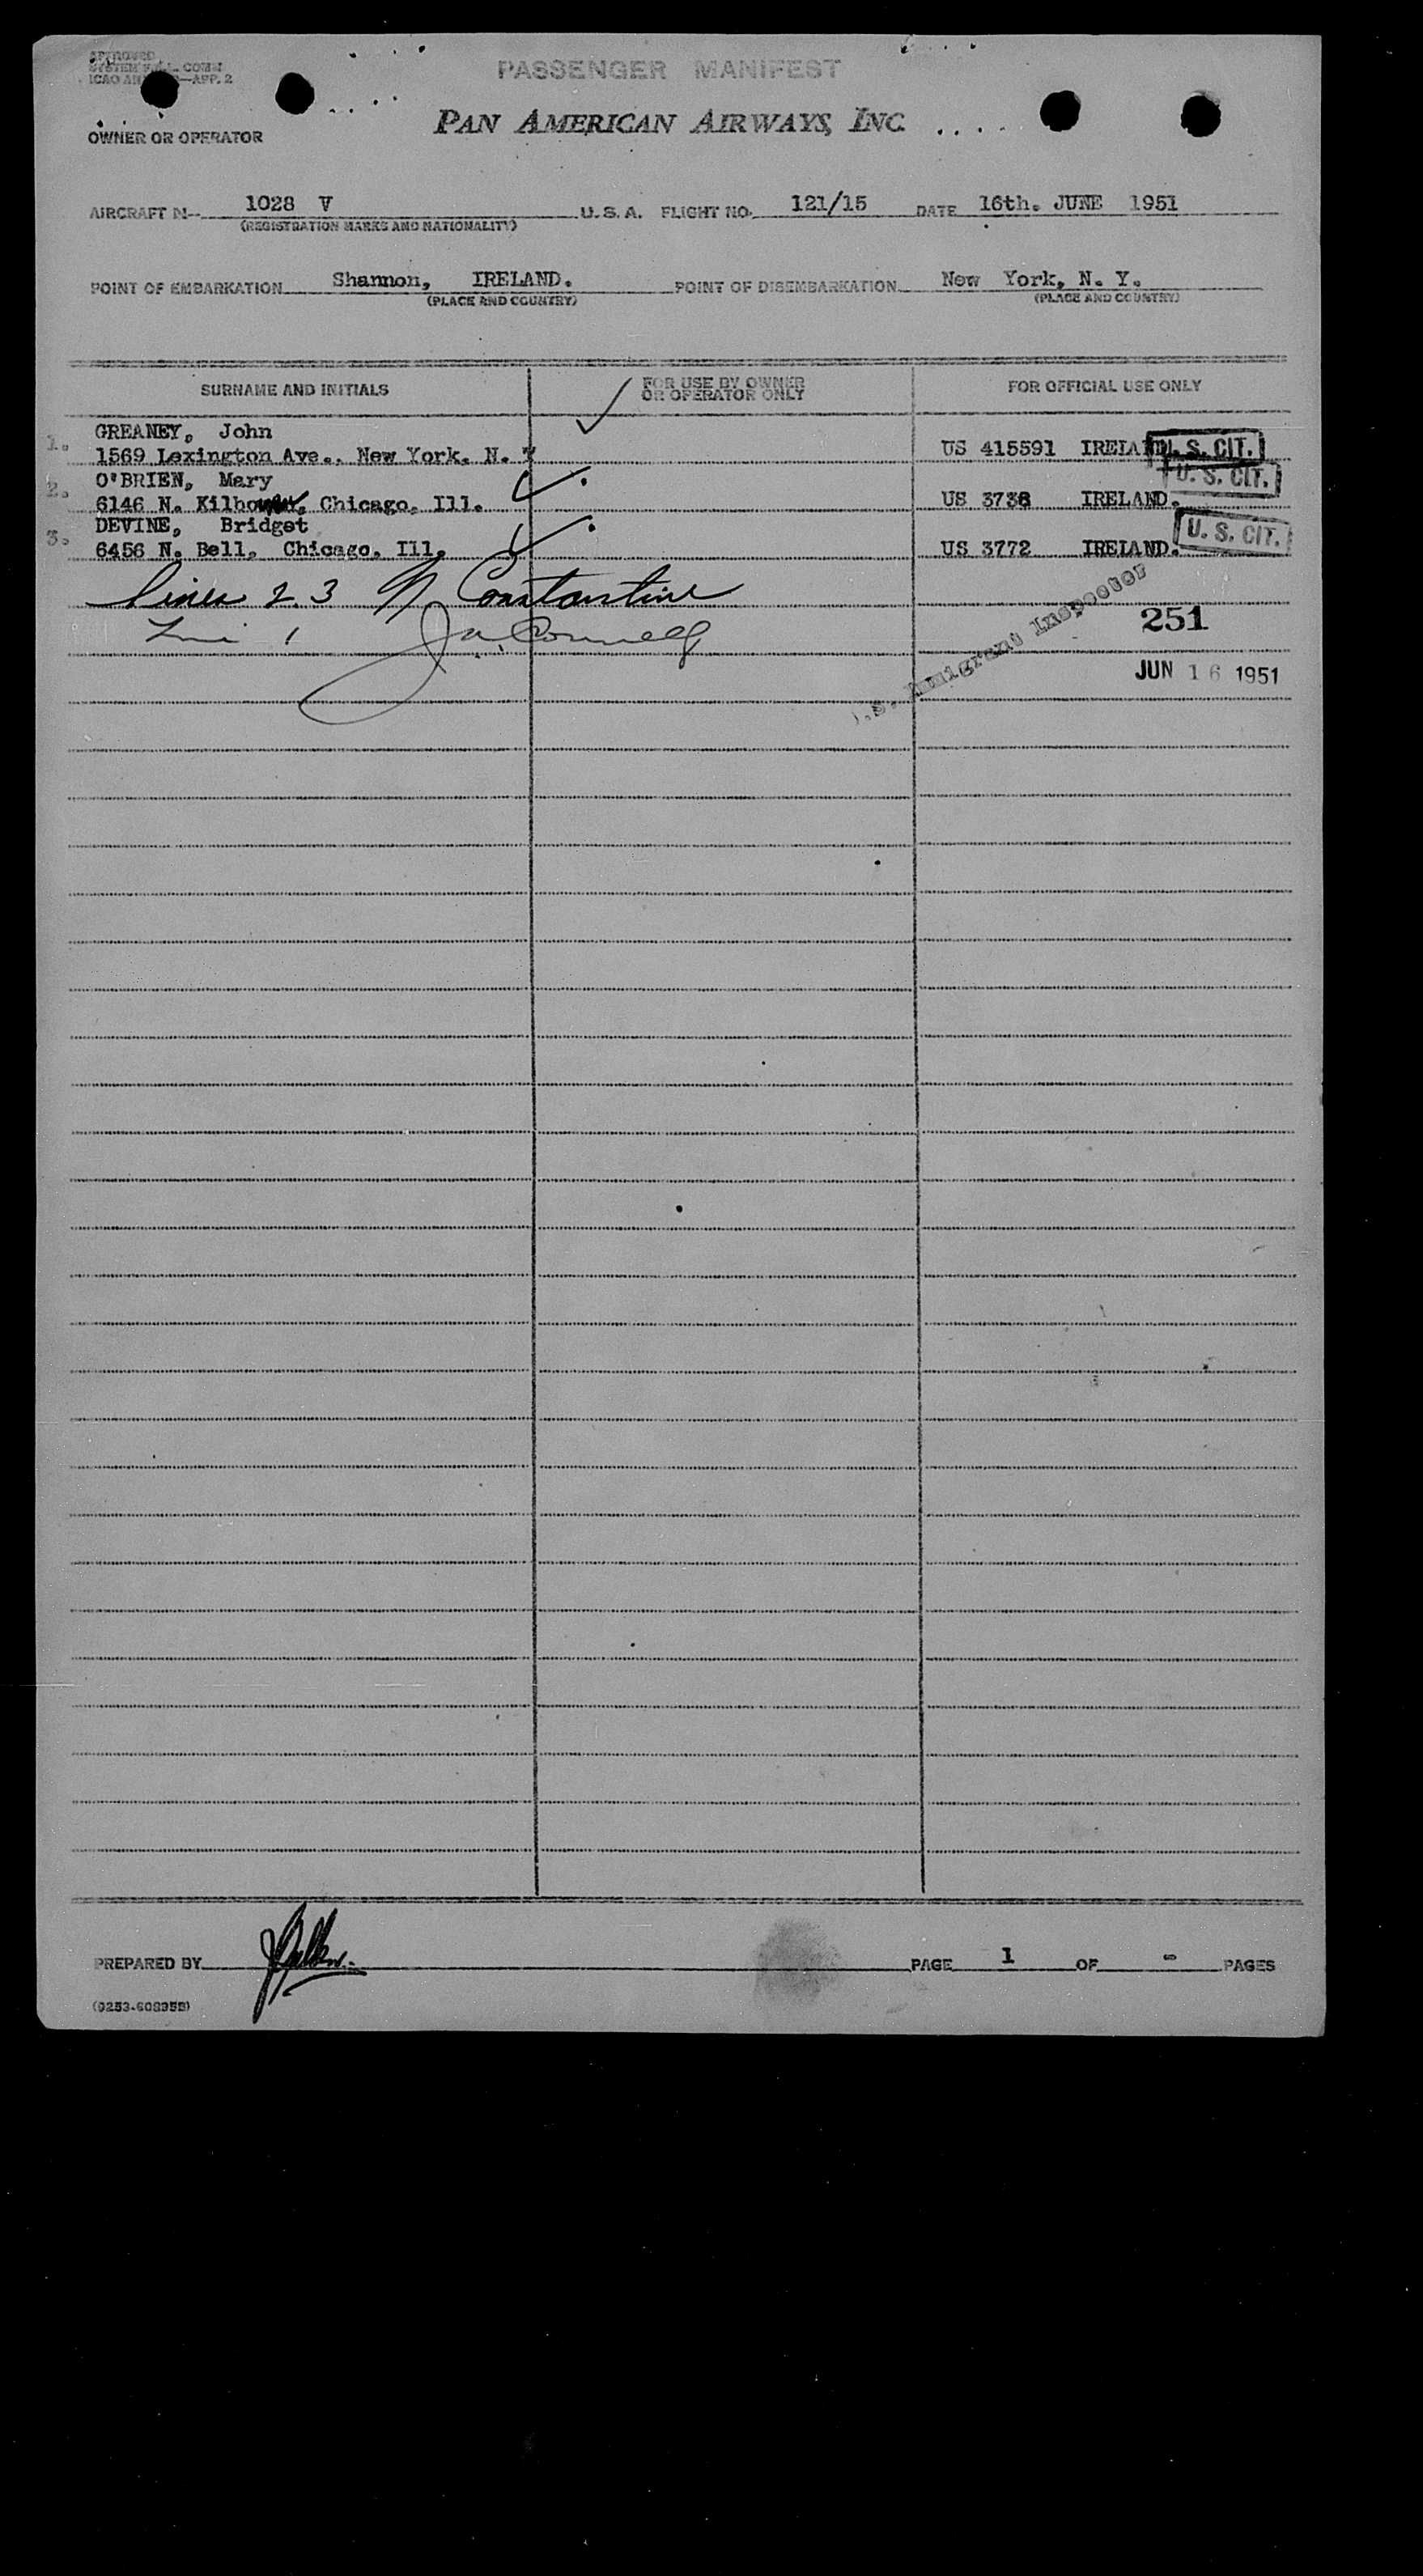 APPROVED
PASSENGER MANIFEST
PAN AMERICAN AIRWAYS, INC.
OWNER OR OPERATOR
AIRCRAFT N-- 1028 V U. S. A. FLIGHT NO. 121/15 DATE 16th. JUNE 1951
(REGISTRATION MARKS AND NATIONALITY)
POINT OF EMBARKATION Shannon, IRELAND. POINT OF DISEMBARKATION New York, N. Y.
(PLACE AND COUNTRY) (PLACE AND COUNTRY)
SURNAME AND INITIALS FOR USE BY OWNER OR OPERATOR ONLY FOR OFFICIAL USE ONLY
1. GREANEY, John
1569 Lexington Ave., New York, N. Y US 415591 IRELAND U. S. CIT.
2. O'BRIEN, Mary U. S. CIT.
6146 N. Chicago, Ill. US 3738 IRELAND.
3. DEVINE, Bridget U. S. CIT.
6456 N. Bell, Chicago, Ill. US 3772 IRELAND.
Lines 2.3 Constantine
Line 1
U.S. Immigrant Inspector
251
JUN 16 1951
PREPARED BY PAGE 1 OF - PAGES